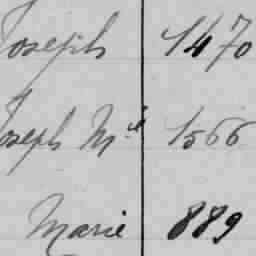 Joseph 1470
Joseph Mie 1566
Marie 889